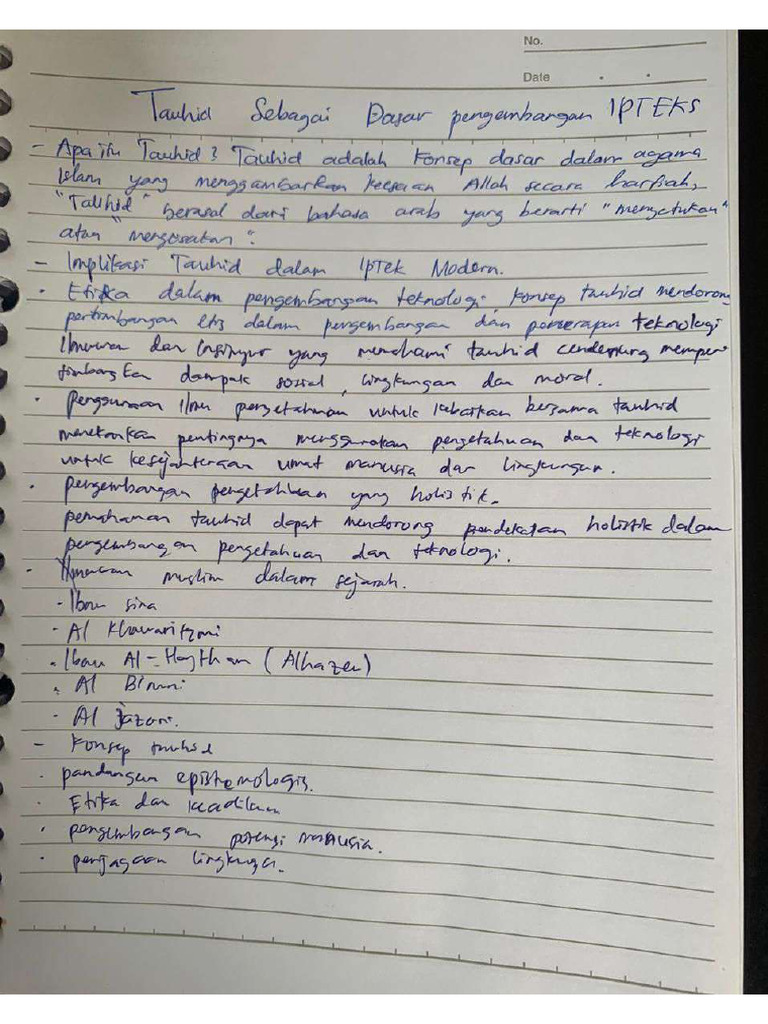 No.
Date
Tauhid Sebagai Dasar pengembangan IPTEKS
- Apa itu Tauhid? Tauhid adalah konsep dasar dalam agama
Islam yang menggambarkan keesaan Allah secara harfiah,
"Tauhid" berasal dari bahasa arab yang berarti "menyatukan"
atau "mengesakan".
- Implikasi Tauhid dalam IPTek Modern.
· Etika dalam pengembangan teknologi, konsep tauhid mendorong
pertimbangan etis dalam pengembangan dan penerapan teknologi
Ilmuwan dan Insinyur yang memahami tauhid cenderung memper
timbangkan dampak sosial, lingkungan dan moral.
· Penggunaan Ilmu pengetahuan untuk kebaikan bersama tauhid
menekankan pentingnya menggunakan pengetahuan dan teknologi
untuk kesejahteraan umat manusia dan lingkungan.
· pengembangan pengetahuan yang holistik.
pemahaman tauhid dapat mendorong pendekatan holistik dalam
pengembangan pengetahuan dan teknologi.
- Ilmuwan muslim dalam sejarah.
· Ibnu sina
· Al Khawaritzmi
· Ibnu Al-Haytham (Alhazen)
· Al Biruni
· Al jazari.
- Konsep tauhid
· pandangan epistemologis.
· Etika dan keadilan
· pengembangan potensi manusia.
· penjagaan lingkungan.